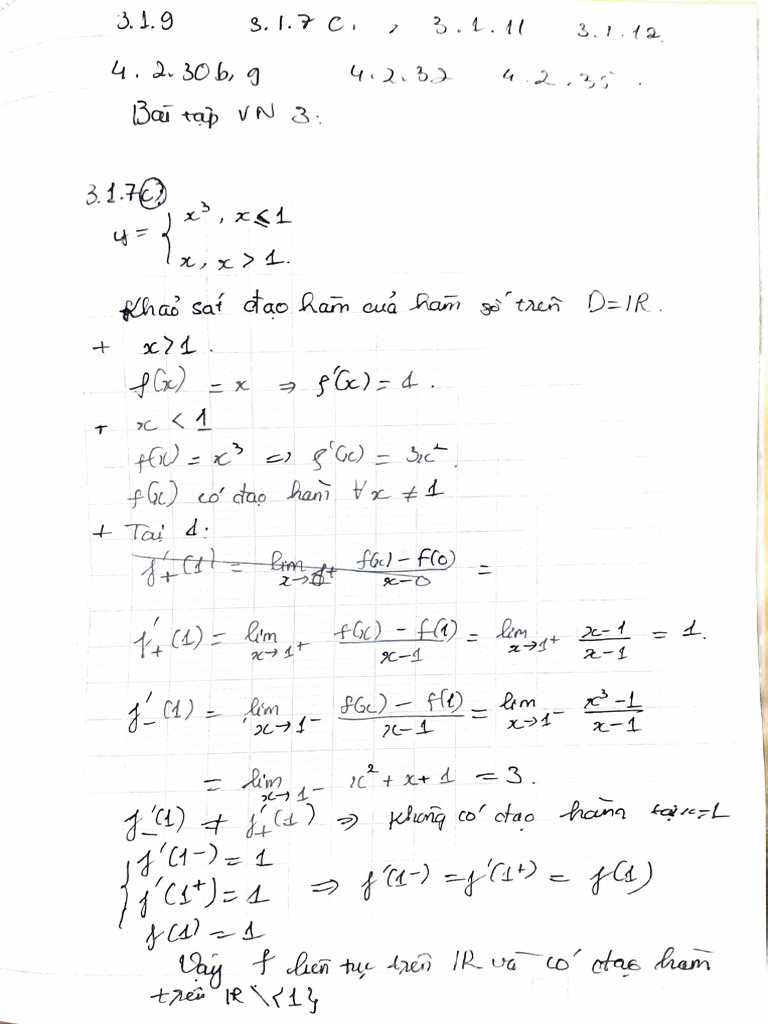 3.1.9 3.1.7 C. , 3.1.11 3.1.12
4.2.30b,g 4.2.32 4.2.35.
Bài tập VN 3:
3.1.7 c)
y = { x³, x ≤ 1
x, x > 1.
Khảo sát đạo hàm của hàm số trên D=IR.
+ x>1.
f(x) = x ⇒ f'(x) = 1.
+ x < 1
f(x) = x³ ⇒ f'(x) = 3x².
f(x) có đạo hàm ∀x ≠ 1
+ Tại 1:
f'₊(1) = lim x→0⁺ (f(x) - f(0))/(x-0) =
f'₊(1) = lim x→1⁺ (f(x) - f(1))/(x-1) = lim x→1⁺ (x-1)/(x-1) = 1.
f'₋(1) = lim x→1⁻ (f(x) - f(1))/(x-1) = lim x→1⁻ (x³-1)/(x-1)
= lim x→1⁻ x² + x + 1 = 3.
f'₋(1) ≠ f'₊(1) ⇒ Không có đạo hàm tại x=1
{ f'(1-) = 1
f'(1⁺) = 1 ⇒ f'(1-) = f'(1⁺) = f(1)
f(1) = 1
Vậy f liên tục trên IR và có đạo hàm
trên IR \ {1}